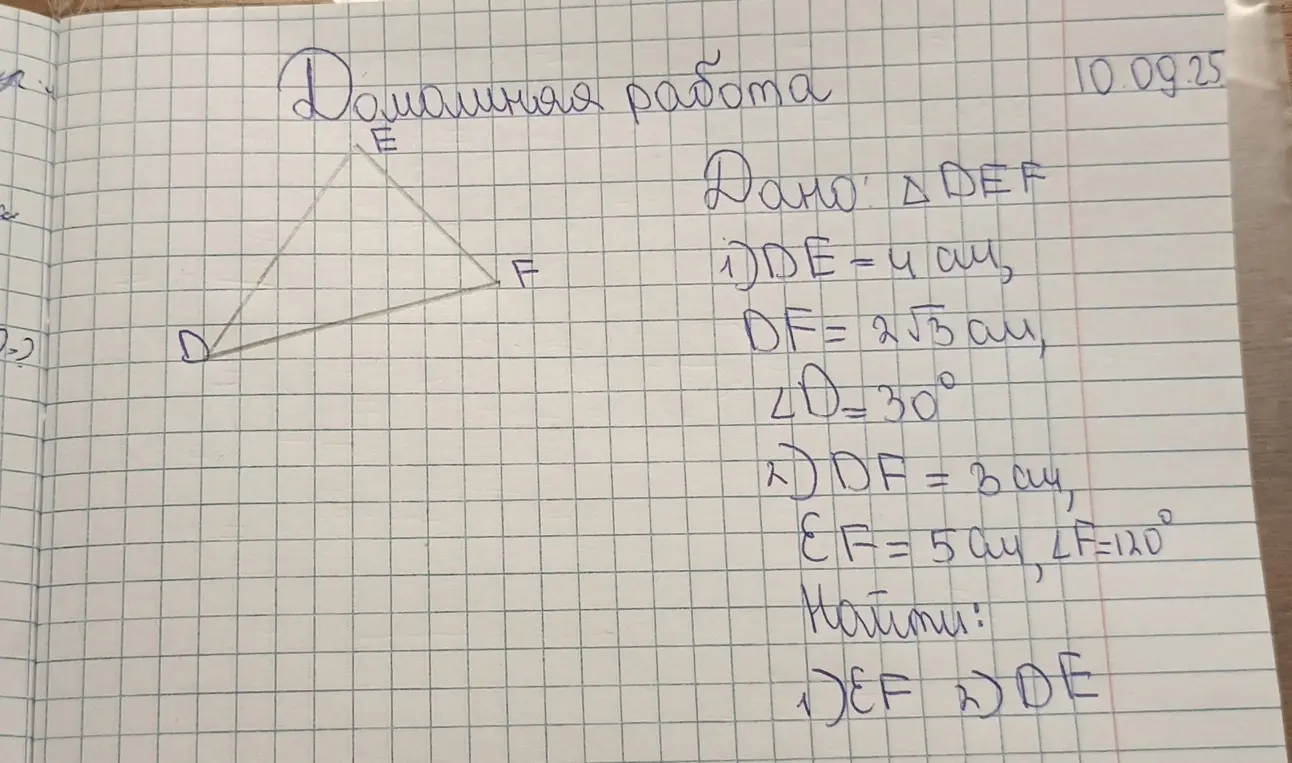 Домашняя работа
10.09.25
E
F
D
Дано: △DEF
1) DE = 4 см,
DF = 2√3 см,
∠D = 30°
2) DF = 3 см,
EF = 5 см, ∠F=120°
Найти:
1) EF 2) DE